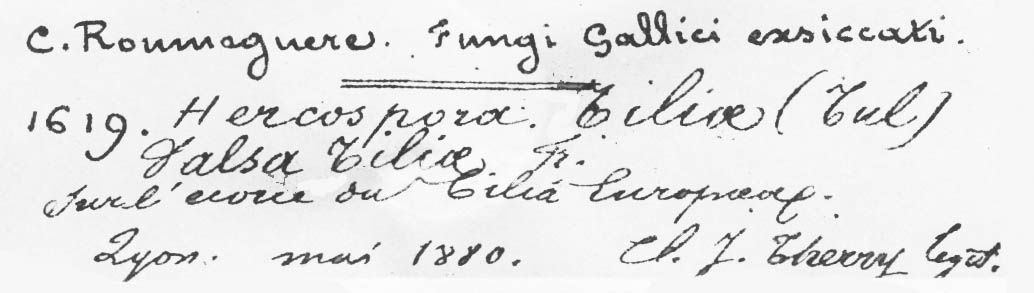 C. Roumeguere. Fungi Gallici exsiccati.
1619. Hercospora. Tiliæ (Tul)
Valsa Tiliæ Fr.
Sur l'ecorce du Tilia Europeae.
Lyon. mai 1880. Cl. J. Therry legit.